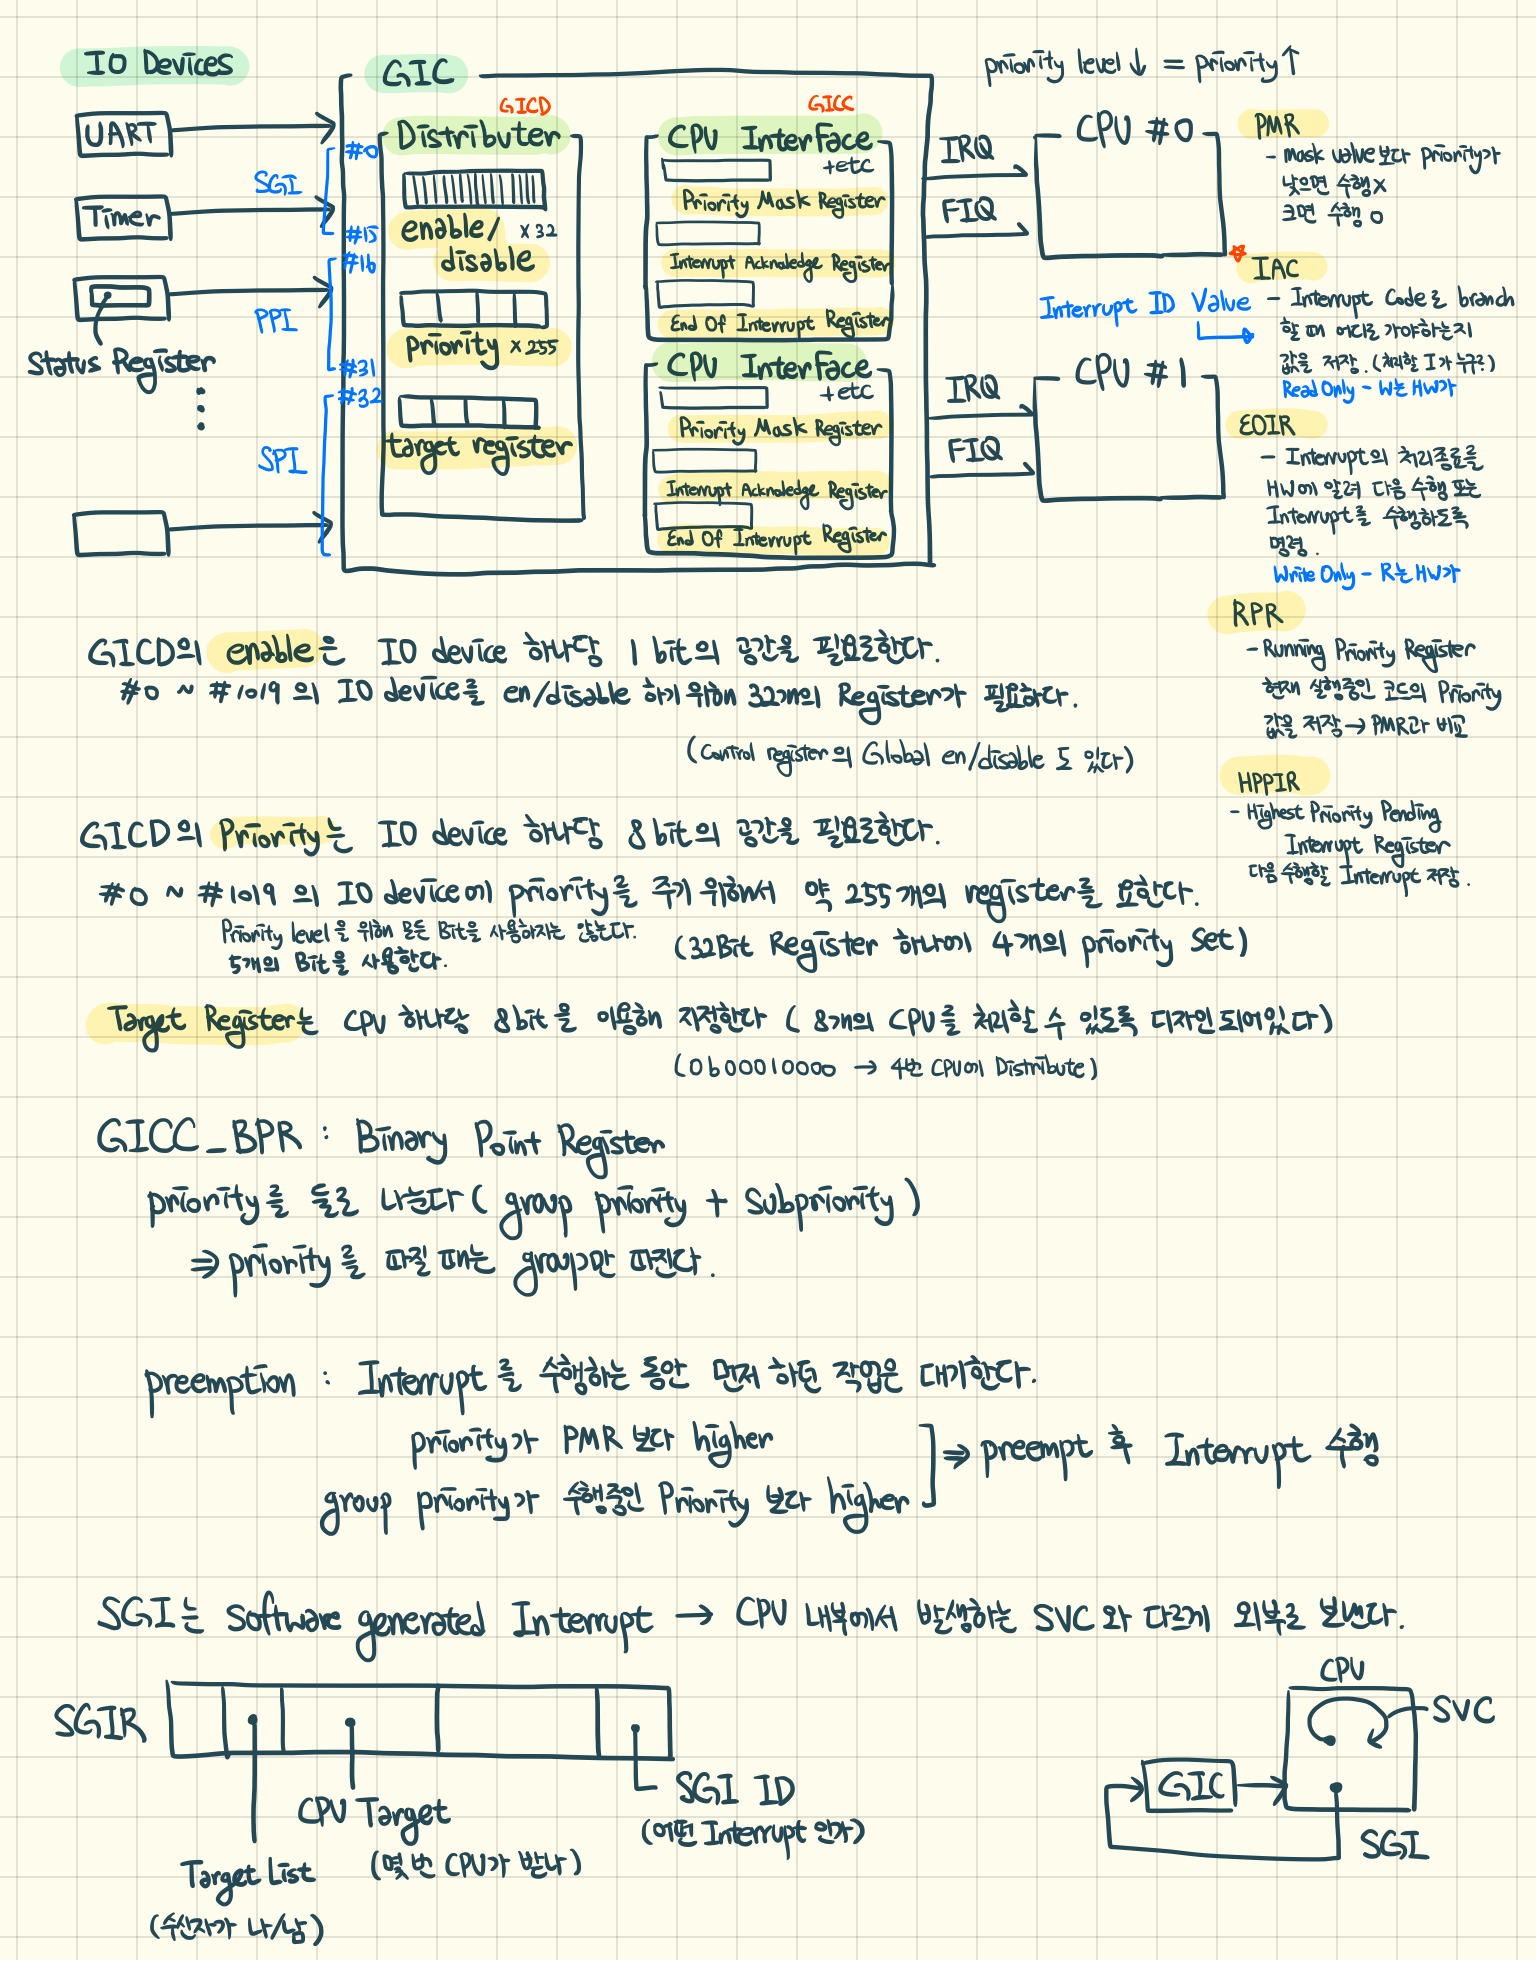 IO Devices
UART
Timer
Status Register
SGI
PPI
SPI
#0
#15
#16
#31
#32
GIC
GICD
Distributer
enable/ x 32
disable
priority x 255
target register
GICC
CPU Interface
+etc
Priority Mask Register
Interrupt Acknoledge Register
End Of Interrupt Register
CPU Interface
+etc
Priority Mask Register
Interrupt Acknoledge Register
End Of Interrupt Register
IRQ
FIQ
IRQ
FIQ
priority level ↓ = priority ↑
CPU #0
CPU #1
Interrupt ID Value
PMR
- Mask value보다 priority가
낮으면 수행 x
크면 수행 o
IAC
- Interrupt Code로 branch
할 때 어디로 가야하는지
값을 저장. (처리할 I가 누구?)
Read Only - W는 HW가
EOIR
- Interrupt의 처리종료를
HW에 알려 다음 수행 또는
Interrupt를 수행하도록
명령.
Write Only - R는 HW가
RPR
- Running Priority Register
현재 실행중인 코드의 Priority
값을 저장 → PMR과 비교
HPPIR
- Highest Priority Pending
Interrupt Register
다음 수행할 Interrupt 저장.
GICD의 enable은 IO device 하나당 1 bit의 공간을 필요로한다.
#0 ~ #1019 의 IO device를 en/disable 하기 위해 32개의 Register가 필요하다.
(Control register의 Global en/disable 도 있다)
GICD의 Priority는 IO device 하나당 8 bit의 공간을 필요로한다.
#0 ~ #1019 의 IO device에 priority를 주기 위해서 약 255개의 register를 요한다.
Priority level을 위해 모든 Bit을 사용하지는 않는다.
5개의 Bit을 사용한다.
(32Bit Register 하나에 4개의 priority Set)
Target Register는 CPU 하나당 8bit을 이용해 지정한다 (8개의 CPU를 처리할 수 있도록 디자인 되어있다)
(0b00010000 → 4번 CPU에 Distribute)
GICC_BPR : Binary Point Register
priority를 둘로 나눈다 (group priority + Subpriority)
⇒ priority를 따질 때는 group만 따진다.
preemption : Interrupt를 수행하는 동안 먼저 하던 작업은 대기한다.
priority가 PMR 보다 higher
group priority가 수행중인 Priority 보다 higher
⇒ preempt 후 Interrupt 수행
SGI는 Software generated Interrupt → CPU 내부에서 발생하는 SVC 와 다르게 외부로 보낸다.
SGIR
Target List
(수신자가 나/남)
CPU Target
(몇 번 CPU가 받나)
SGI ID
(어떤 Interrupt 인가)
CPU
SVC
GIC
SGI